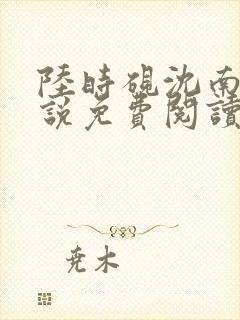 陸時硯沈南
說免費閱讀
尭木